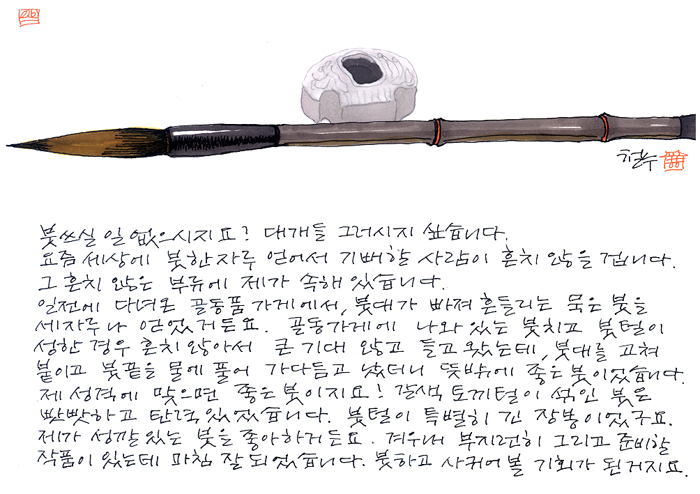 철수
붓쓰실 일 없으시지요? 대개들 그러시지 싶습니다.
요즘 세상에 붓 한자루 얻어서 기뻐할 사람이 흔치 않을 겁니다.
그 흔치 않은 부류에 제가 속해 있습니다.
일전에 다녀온 골동품 가게에서, 붓대가 빠져 흔들리는 묵은 붓을
세자루나 얻었거든요. 골동가게에 나와 있는 붓치고 붓털이
성한 경우 흔치 않아서 큰 기대 않고 들고 왔는데, 붓대를 고쳐
붙이고 붓끝을 물에 풀어 가다듬고 났더니 뜻밖에 좋은 붓이었습니다.
제 성격에 맞으면 좋은 붓이지요! 갈색 토끼털이 섞인 붓은
빳빳하고 탄력있었습니다. 붓털이 특별히 긴 장봉이었구요.
제가 성깔있는 붓을 좋아하거든요. 겨우내 부지런히 그리고 준비할
작품이 있는데 마침 잘 되었습니다. 붓하고 사귀어 볼 기회가 된 거지요.